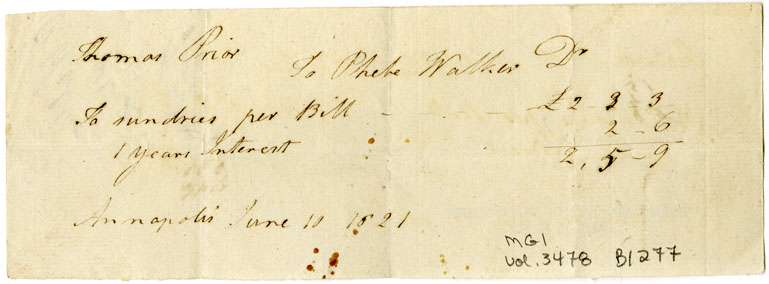 Thomas Prior To Phebe Walker Dr
To sundries per Bill - - - £2 - 3 3
1 years Interest 2 - 6
2, 5 - 9
Annapolis June 10 1821
MG1
Vol. 3478 B1277